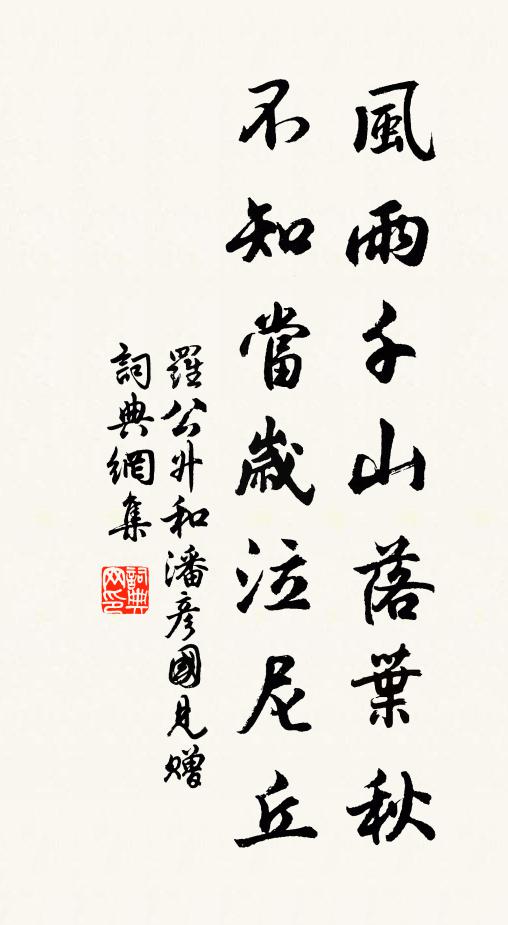 風雨千山落葉秋
不知當歲泣尼丘
羅公升和潘彥國見贈
詞典網集
詞典網印